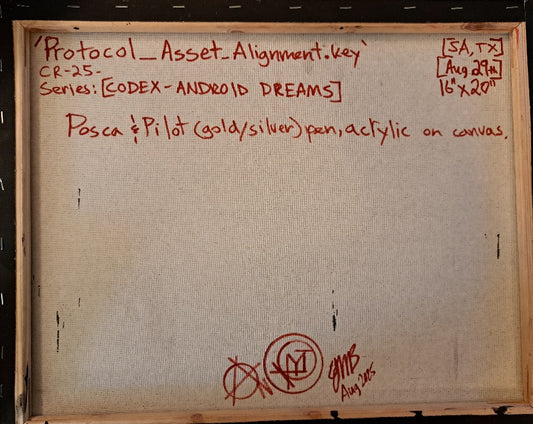 'Protocol_Asset_Alignment.key'
CR-25-
Series: [CODEX-ANDROID DREAMS]
[SA, TX]
[Aug 29th]
16" x 20"
Posca & Pilot (gold/silver) pen, acrylic on canvas.
JMB
Aug 2025